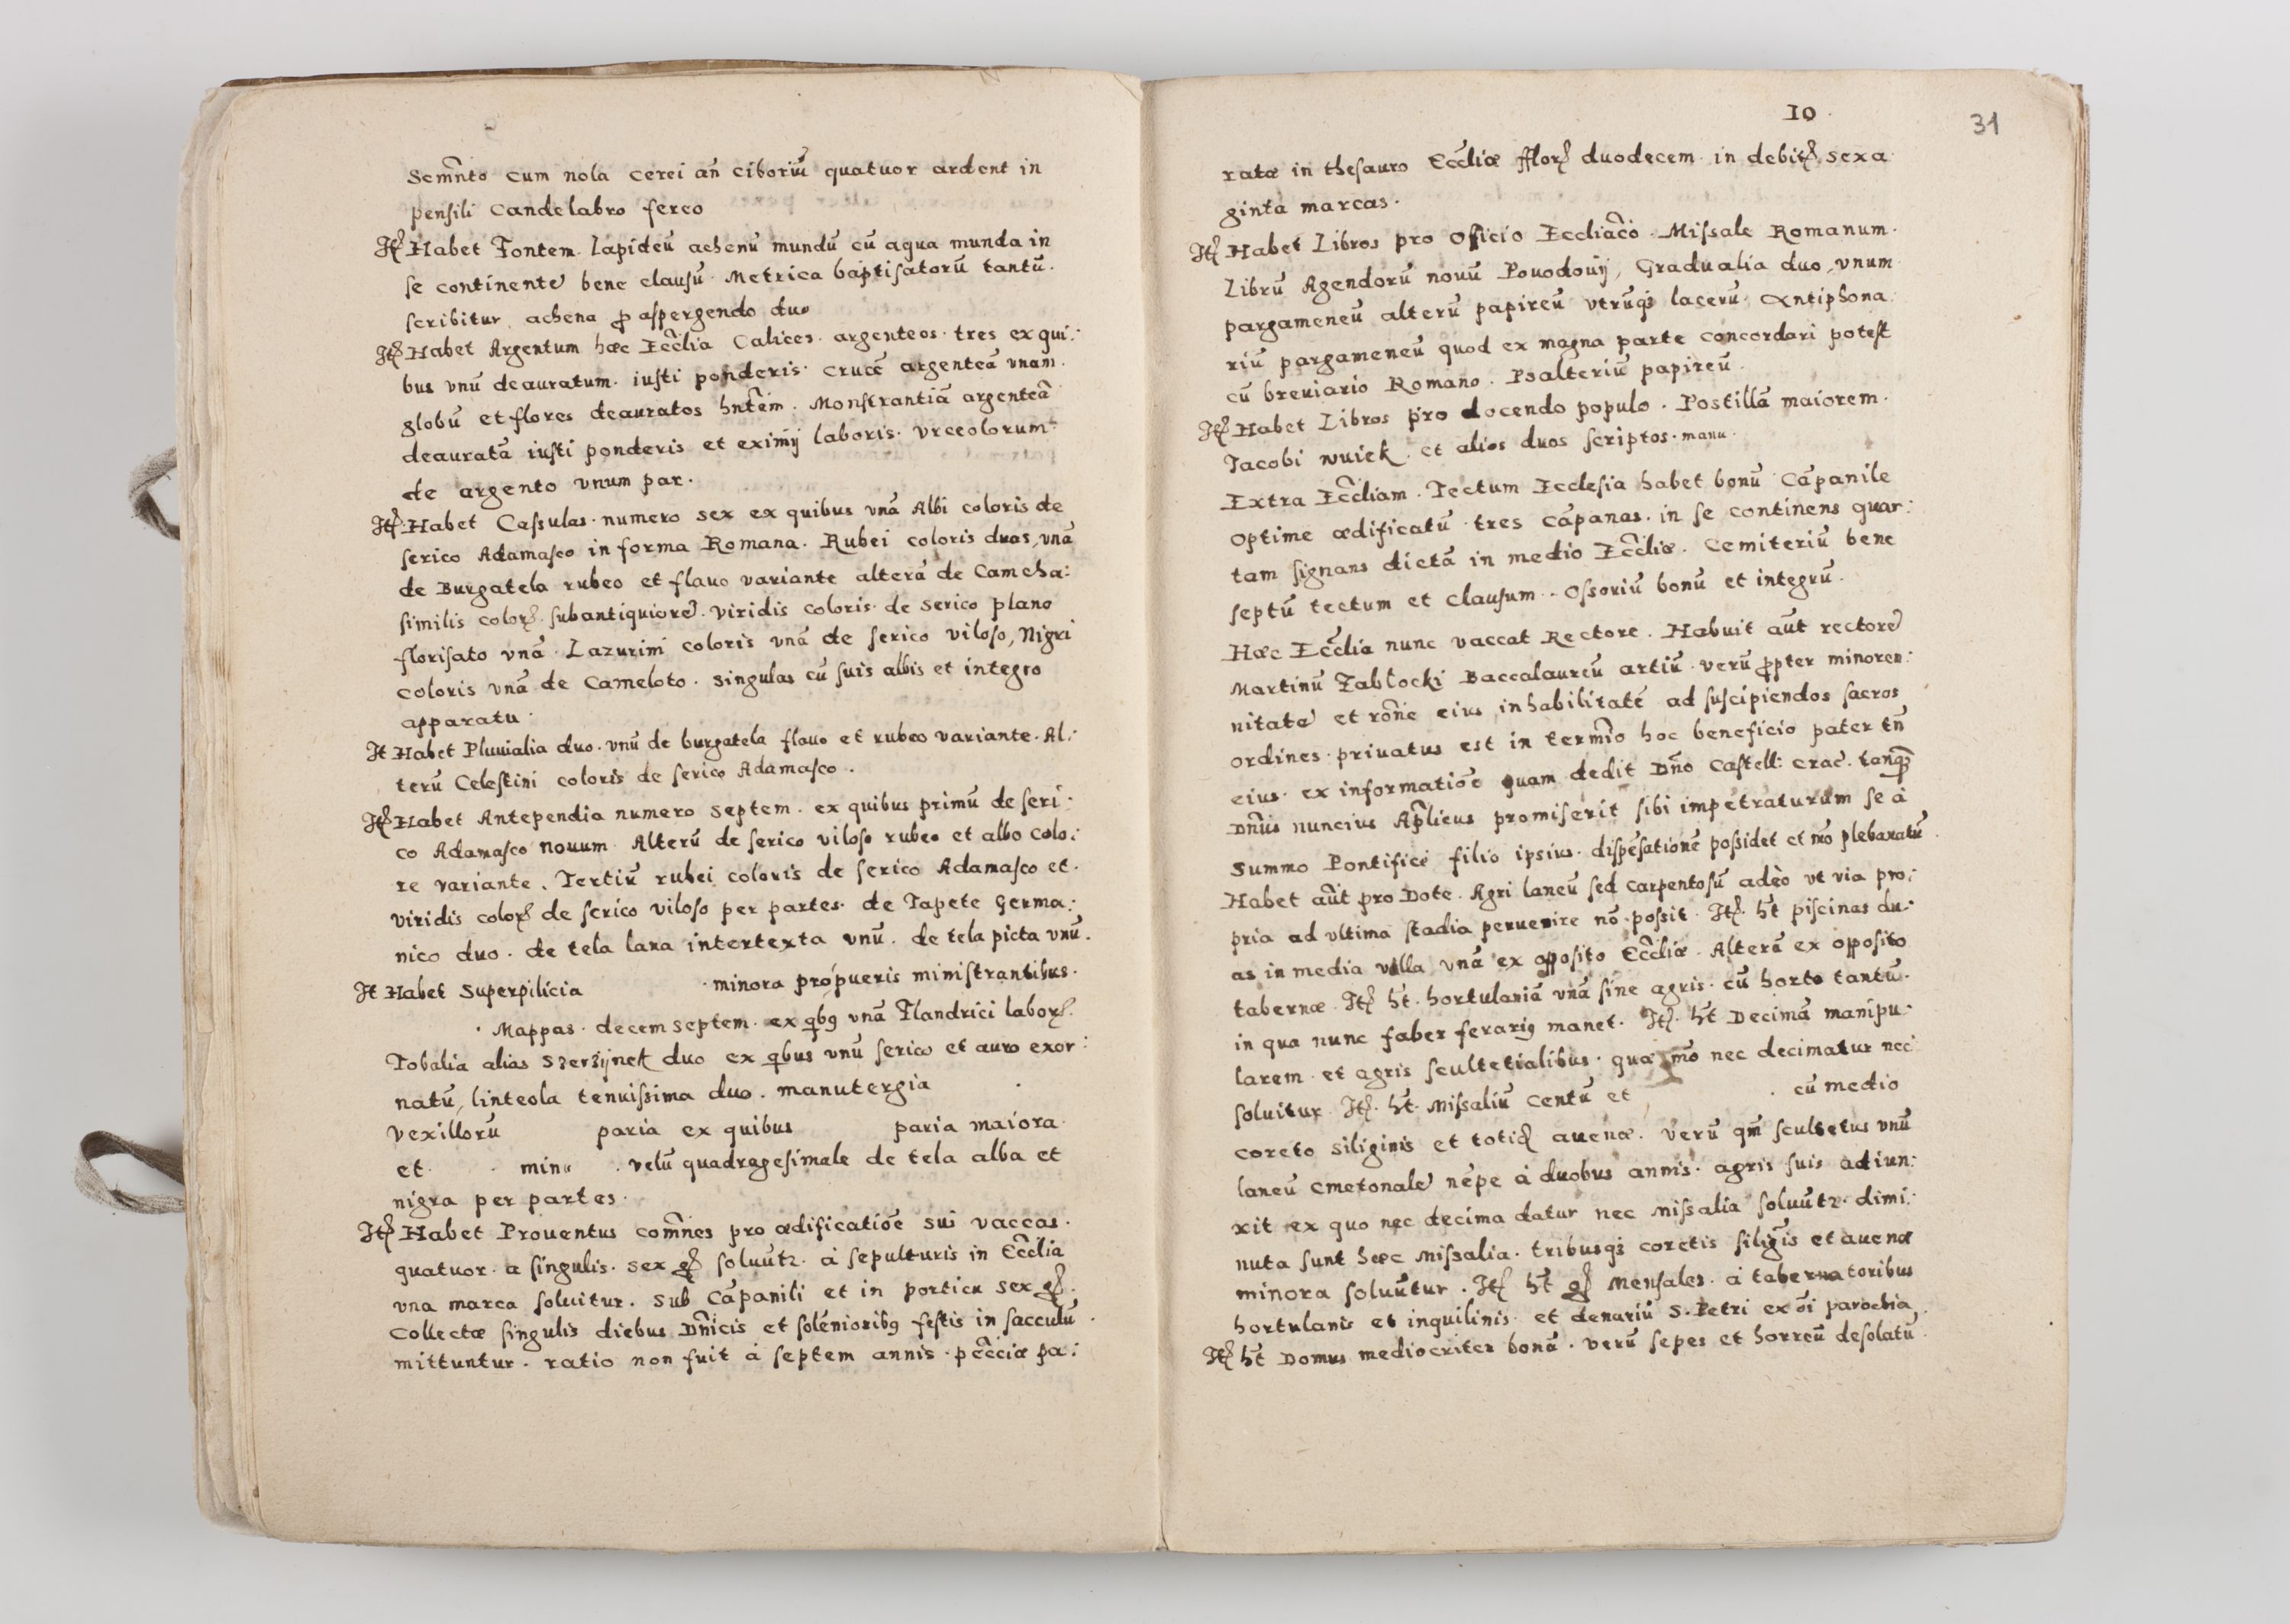 Semñto cum nola cerei añ ciboriū quatuor ardent in
pensili candelabro fereo
Itē Habet Fontem lapideū achenū mundū cū aqua munda in
se continente bene clausū. Metrica baptisatorū tantū.
scribitur achena ꝓ aspergendo duo
Itē Habet Argentum hæc Ecclīa Calices argenteos tres ex qui:
bus vnū deauratum iusti ponderis crucē argenteā vnam.
globū et flores deauratos hntēm. Monstrantiā argenteā
deauratā iusti ponderis et eximij laboris. Vrceolorum
de argento vnum par.
Itē Habet Casulas numero sex ex quibus vnā Albi coloris de
serico Adamasco in forma Romana. Rubei coloris duas, vnā
de Burgatela rubeo et flauo variante alterā de Camcha:
similis colorꝭ subantiquiorē. viridis coloris de serico plano
florisato vnā. Lazurini coloris vnā de serico viloso, Nigri
coloris vnā de Cameloto. singulas cū suis albis et integro
apparatu.
It Habet Pluuialia duo. vnū de burgatela flauo et rubeo variante. Al:
terū Celestini coloris de serico Adamasco.
Itē Habet Antependia numero septem. ex quibus primū de seri:
co Adamasco nouum Alterū de serico viloso rubeo et albo colo:
re variante. Tertiū rubei coloris de serico Adamasco et.
viridis colorꝭ de serico viloso per partes. de Tapete Germa:
nico duo. de tela lana intertexta vnū. de tela picta vnū.
It Habet Superpilicia minora pro pueris ministrantibus.
Mappas decem septem. ex qbꝰ vnā Flandrici laborꝭ.
Tobalia alias Szerzijnek duo ex qbus vnū serico et auro exor:
natū, linteola tenuissima duo. manutergia
Vexillorū paria ex quibus paria maiora
et minᵃ. velū quadragesimale de tela alba et
nigra per partes.
Itē Habet Prouentus com̄nes pro ædificatiōe sui vaccas.
quatuor a singulis sex gꝭ soluūtꝛ. à sepulturis in Ecclīa
vna marca soluitur. sub Cāpanili et in porticu sex gꝭ.
Collectæ singulis diebus Dñicis et solēnioribꝰ festis in sacculū.
mittuntur. ratio non fuit à septem annis. peccīæ pa:
10
31
ratæ in thesauro Ecclīæ fflorꝭ duodecem in debitꝭ sexa
ginta marcas.
Itē Habet Libros pro officio Eccliāco. Missale Romanum.
Librū Agendorū nouū Pouodouij, Gradualia duo, vnum
pargameneū alterū papireū vtrūqꝫ lacerū. Antiphona
riū pargameneū quod ex magna parte concordari potest
cū breuiario Romano. Psalteriū papireū.
Itē Habet Libros pro docendo populo. Postillā maiorem
Jacobi wuiek et alios duos scriptos manu.
Extra Ecclīam. Tectum Ecclesia habet bonū Cāpanile
optime ædificatū tres cāpanas in se continens quar:
tam signans dictā in medio Ecclīæ. Cemiteriū bene
septū tectum et clausum. Ossoriū bonū et integrū.
Hæc Ecclīa nunc vaccat Rectore. Habuit aūt rectorē
Martinū Zablocki Baccalaureū artiū verū ꝓpter minoren:
nitatē et rōne eius inhabilitatē ad suscipiendos sacros
ordines priuatus est in termīo hoc beneficio pater tñ
eius ex informatiōe quam dedit Dño Castell: crac. tanqꝫ
Dñus nuncius Aplicus promiserit sibi impetraturum se à
Summo Pontifice filio ipsius dispēsationē possidet et mō plebanatū.
Habet aūt pro Dote. Agri laneū sed carpentosū adeò vt via pro:
pria ad vltima stadia peruenire nō possit. Itē ht̄ piscinas du:
as in media villa vnā ex opposito Ecclīæ. Alterā ex opposito
tabernæ. Itē ht̄ hortulaniā vnā sine agris cū horto tantū.
in qua nunc faber ferariꝰ manet. Itē ht̄ Decimā manipu:
larem et agris scultetialibus. quæ mō nec decimatur nec
soluitur. Itē ht̄ Missaliū centū et cū medio
coreto siliginis et totidꝭ auenæ. verū qm̄ scultetus vnū
laneū cmetonalē nēpe à duobus annis. agris suis adiun:
xit ex quo nec decima datur nec missalia soluūtꝛ. dimi:
nuta sunt hæc missalia. tribusqꝫ coretis siligīs et auenæ
minora soluūtur. Itē ht̄ gꝭ mensales. à tabernatoribus
hortulanis et inquilinis et denariū S. Petri ex ōi parochia.
Itē ht̄ Domus mediocriter bonā. verū sepes et horreū desolatū.